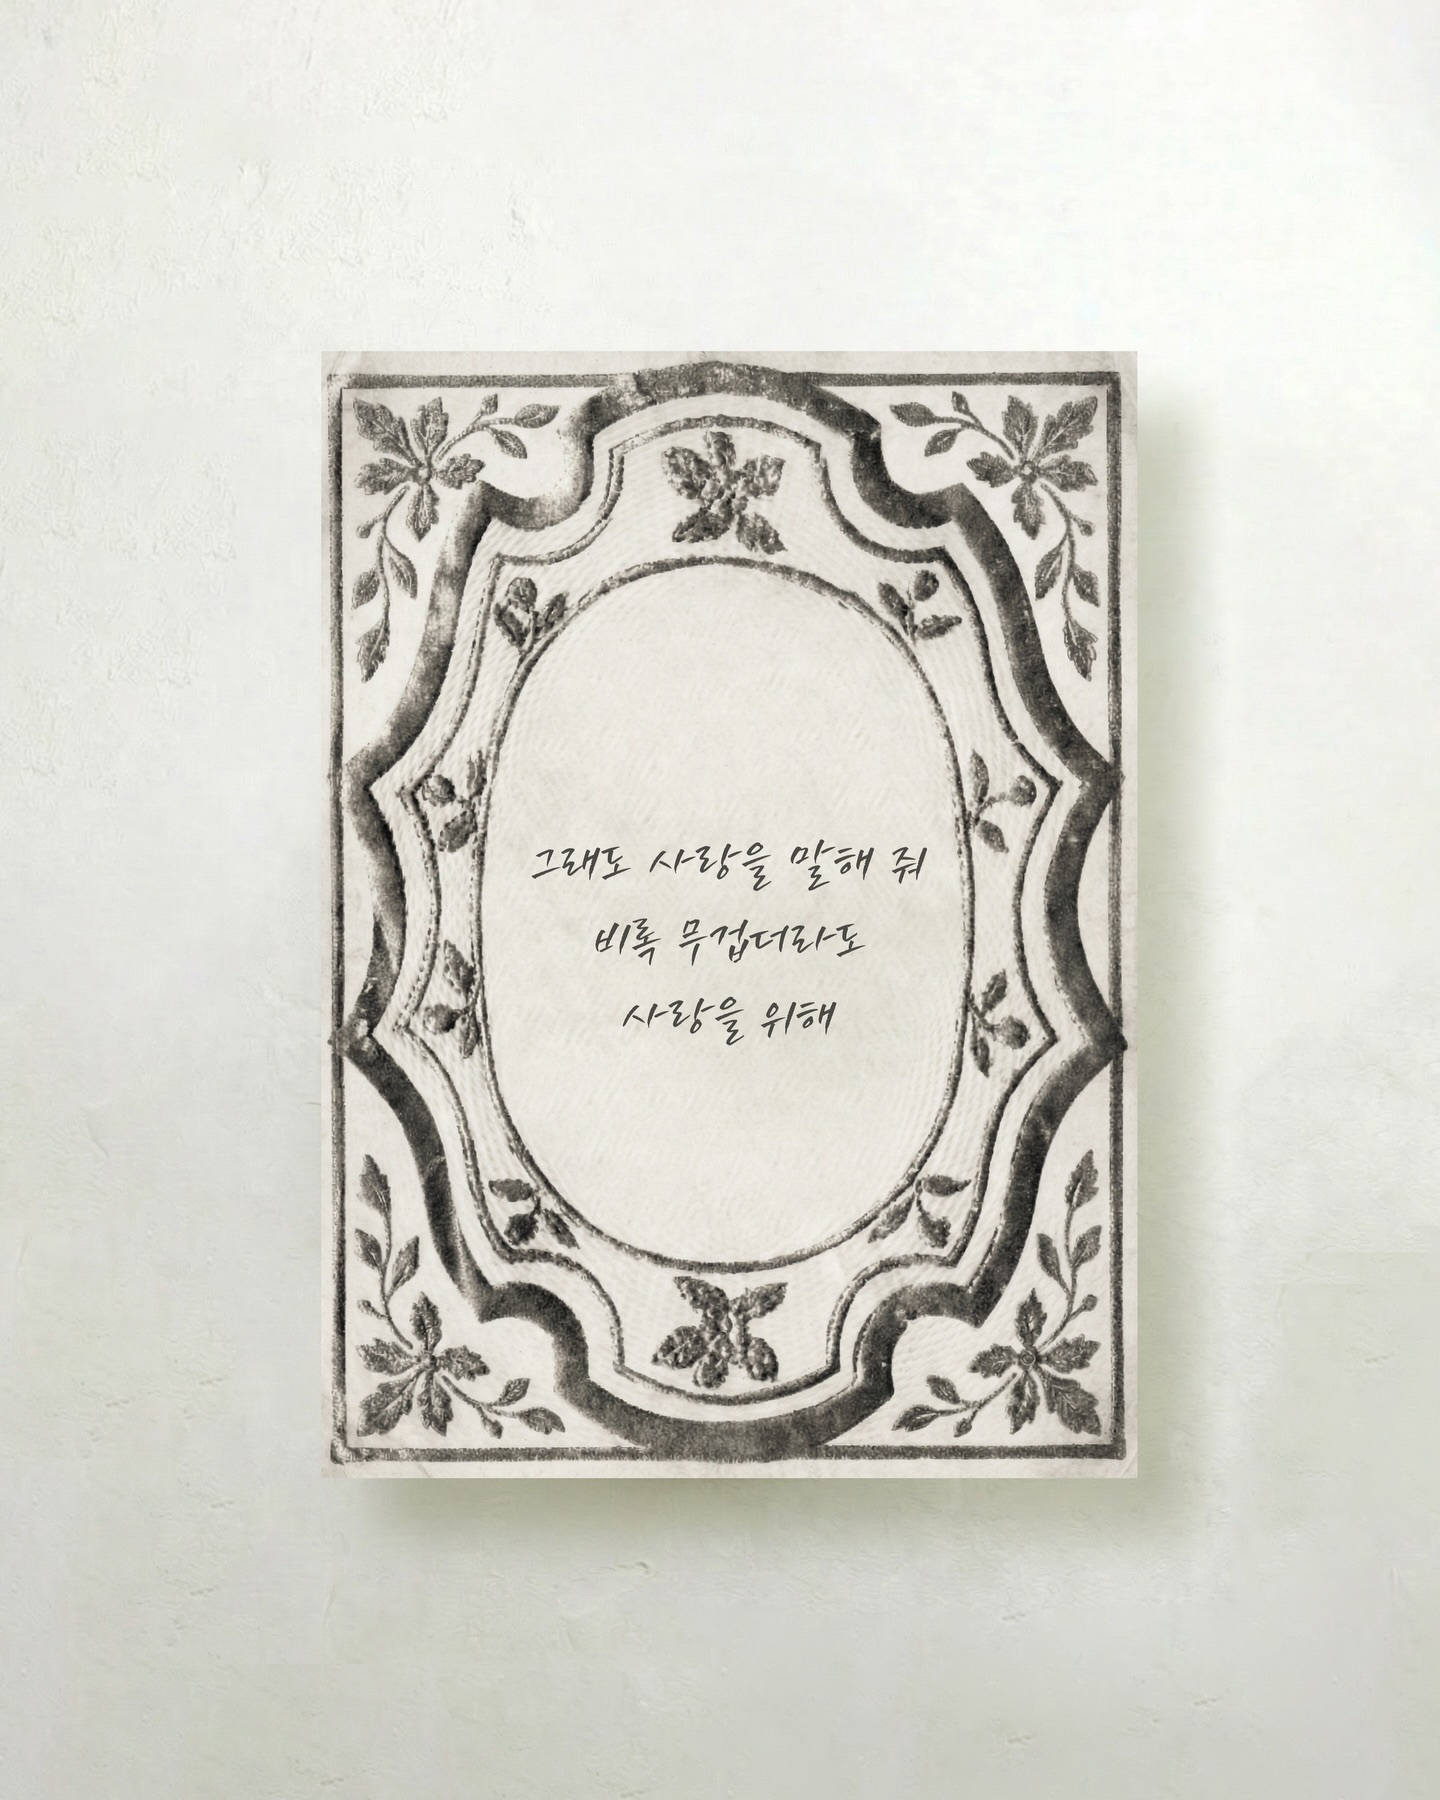 그래도 사랑을 말해 줘
비록 무겁더라도
사랑을 위해